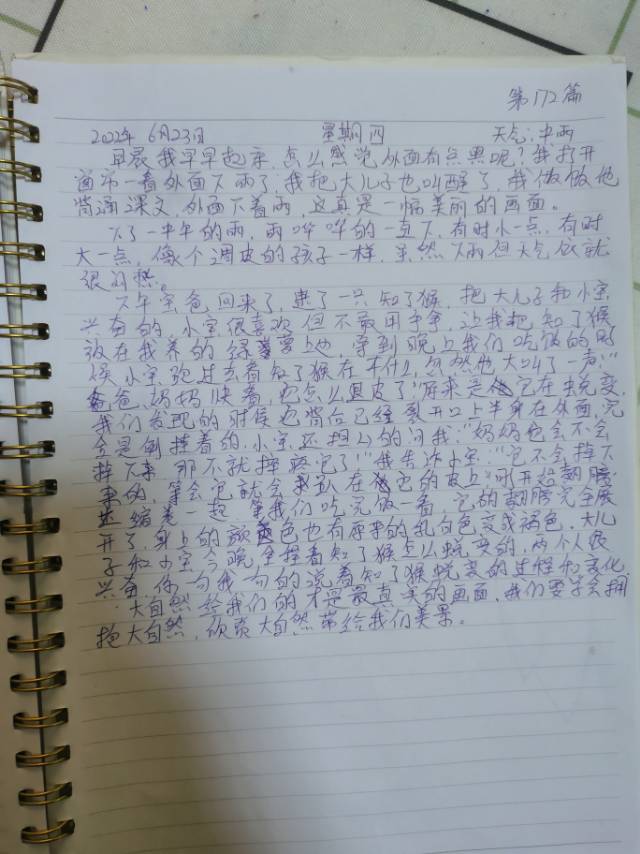 第172篇
2022年 6月23日 星期四 天气:中雨
早晨我早早起床,怎么感觉外面有点黑呢?我打开
窗帘一看外面下雨了,我把大儿子也叫醒了,我做饭他
背诵课文,外面下着雨,这真是一幅美丽的画面。
下了一中午的雨,雨哗哗的一直下,有时小一点,有时
大一点,像个调皮的孩子一样,虽然下雨但天气依就
很闷热。
下午宝爸回来了,逮了一只知了猴,把大儿子和小宝
兴奋的,小宝很喜欢但不敢用手拿,让我把知了猴
放在我养的绿萝上边,等到晚上我们吃饭的时
候小宝跑过去看知了猴在干什么,突然他大叫了一声:“
爸爸,妈妈快看,它怎么脱皮了”原来是它在蜕变,
我们发现的时候它背后已经裂开口上半身在外面,完
全是倒挂着的,小宝还担心的问我:“妈妈它会不会
掉下来,那不就摔疼它了”我告诉小宝:“它不会掉下
来的,等会它就会趴在它的皮上”刚开始翅膀
是缩卷一起,等我们吃完饭一看,它的翅膀完全展
开了,身上的颜色也有原来的乳白色变成褐色,大儿
子和小宝今晚全程看知了猴怎么蜕变的,两个人很
兴奋,你一句我一句的说着知了猴蜕变的过程和变化,
大自然给我们的才是最真实的画面,我们要学会拥
抱大自然,欣赏大自然带给我们美景。